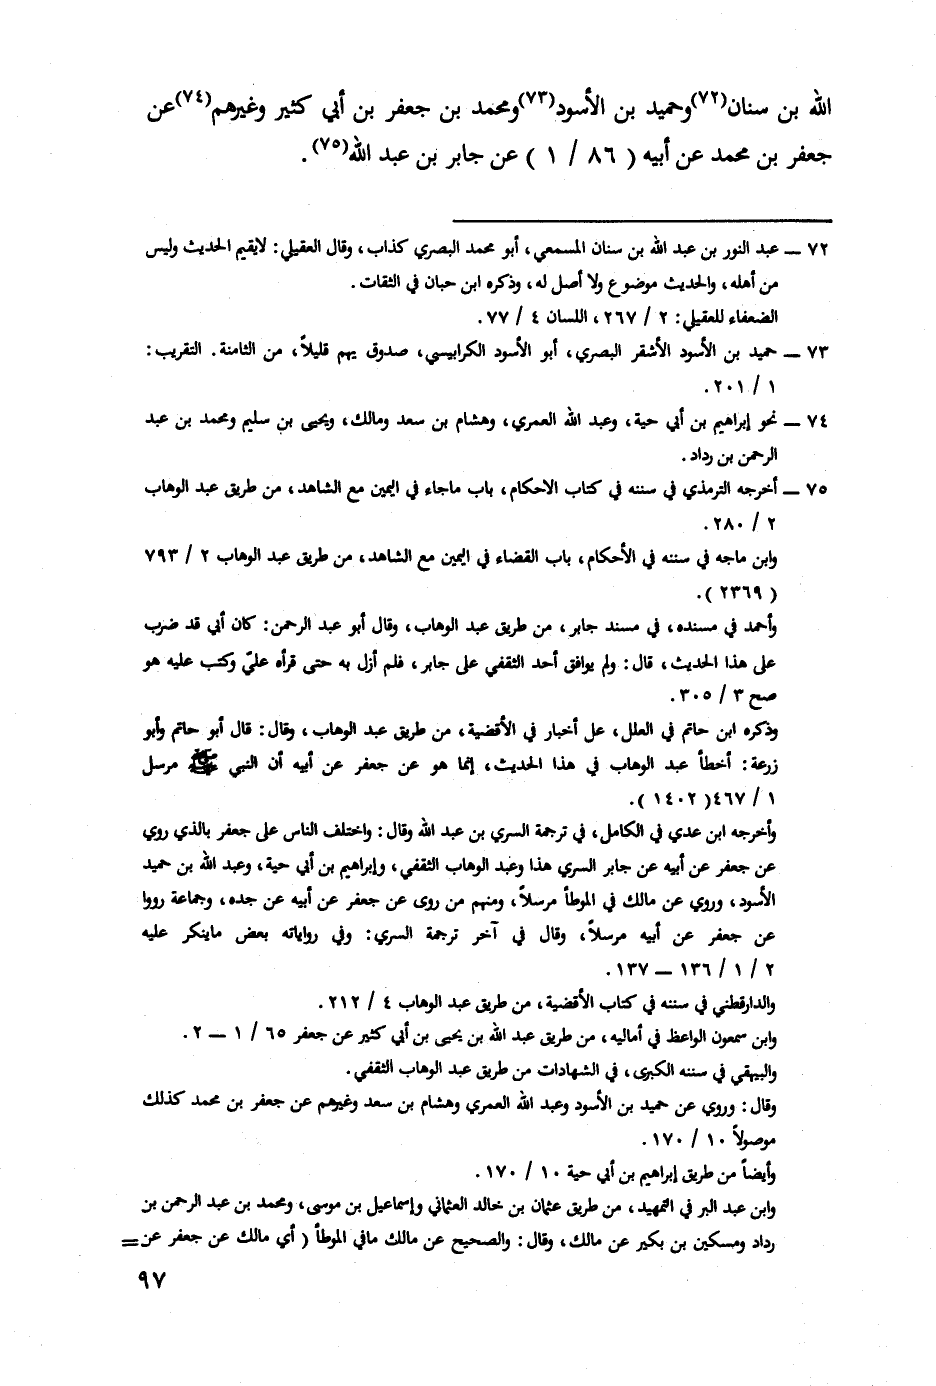 الله بن سنان(٧٢)وحميد بن الأسود(٧٣)ومحمد بن جعفر بن أبي كثير وغيرهم(٧٤)عن
جعفر بن محمد عن أبيه ( ٨٦ / ١ ) عن جابر بن عبد الله(٧٥).
٧٢ ــ عبد النور بن عبد الله بن سنان المسمعي، أبو محمد البصري كذاب، وقال العقيلي: لايقيم الحديث وليس
من أهله، والحديث موضوع ولا أصل له، وذكره ابن حبان في الثقات.
الضعفاء للعقيلي: ٢ / ٢٦٧، اللسان ٤ / ٧٧.
٧٣ ــ حميد بن الأسود الأشقر البصري، أبو الأسود الكرابيسي، صدوق يهم قليلاً، من الثامنة. التقريب:
١ / ٢٠١.
٧٤ ــ نحو إبراهيم بن أبي حية، وعبد الله العمري، وهشام بن سعد ومالك، ويحيى بن سليم ومحمد بن عبد
الرحمن بن رداد.
٧٥ ــ أخرجه الترمذي في سننه في كتاب الاحكام، باب ماجاء في اليمين مع الشاهد، من طريق عبد الوهاب
٢ / ٢٨٠.
وابن ماجه في سننه في الأحكام، باب القضاء في اليمين مع الشاهد، من طريق عبد الوهاب ٢ / ٧٩٣
( ٢٣٦٩ ).
وأحمد في مسنده، في مسند جابر، من طريق عبد الوهاب، وقال أبو عبد الرحمن: كان أبي قد ضرب
على هذا الحديث، قال: ولم يوافق أحد الثقفي على جابر، فلم أزل به حتى قرأه عليّ وكتب عليه هو
صح ٣ / ٣٠٥.
وذكره ابن حاتم في العلل، عل أخبار في الأقضية، من طريق عبد الوهاب، وقال: قال أبو حاتم وأبو
زرعة: أخطأ عبد الوهاب في هذا الحديث، إنما هو عن جعفر عن أبيه أن النبي ﷺ مرسل
١ / ٤٦٧( ١٤٠٢ ).
وأخرجه ابن عدي في الكامل، في ترجمة السري بن عبد الله وقال: واختلف الناس على جعفر بالذي روي
عن جعفر عن أبيه عن جابر السري هذا وعبد الوهاب الثقفي، وإبراهيم بن أبي حية، وعبد الله بن حميد
الأسود، وروي عن مالك في الموطأ مرسلاً، ومنهم من روى عن جعفر عن أبيه عن جده، وجماعة رووا
عن جعفر عن أبيه مرسلاً، وقال في آخر ترجمة السري: وفي رواياته بعض ماينكر عليه
٢ / ١ / ١٣٦ ــ ١٣٧.
والدارقطني في سننه في كتاب الأقضية، من طريق عبد الوهاب ٤ / ٢١٢.
وابن سمعون الواعظ في أماليه، من طريق عبد الله بن يحيى بن أبي كثير عن جعفر ٦٥ / ١ ــ ٢.
والبيهقي في سننه الكبرى، في الشهادات من طريق عبد الوهاب الثقفي.
وقال: وروي عن حميد بن الأسود وعبد الله العمري وهشام بن سعد وغيرهم عن جعفر بن محمد كذلك
موصولاً ١٠ / ١٧٠.
وأيضاً من طريق إبراهيم بن أبي حية ١٠ / ١٧٠.
وابن عبد البر في التمهيد، من طريق عثمان بن خالد العثماني وإسماعيل بن موسى، ومحمد بن عبد الرحمن بن
رداد ومسكين بن بكير عن مالك، وقال: والصحيح عن مالك مافي الموطأ ( أي مالك عن جعفر عن =
٩٧